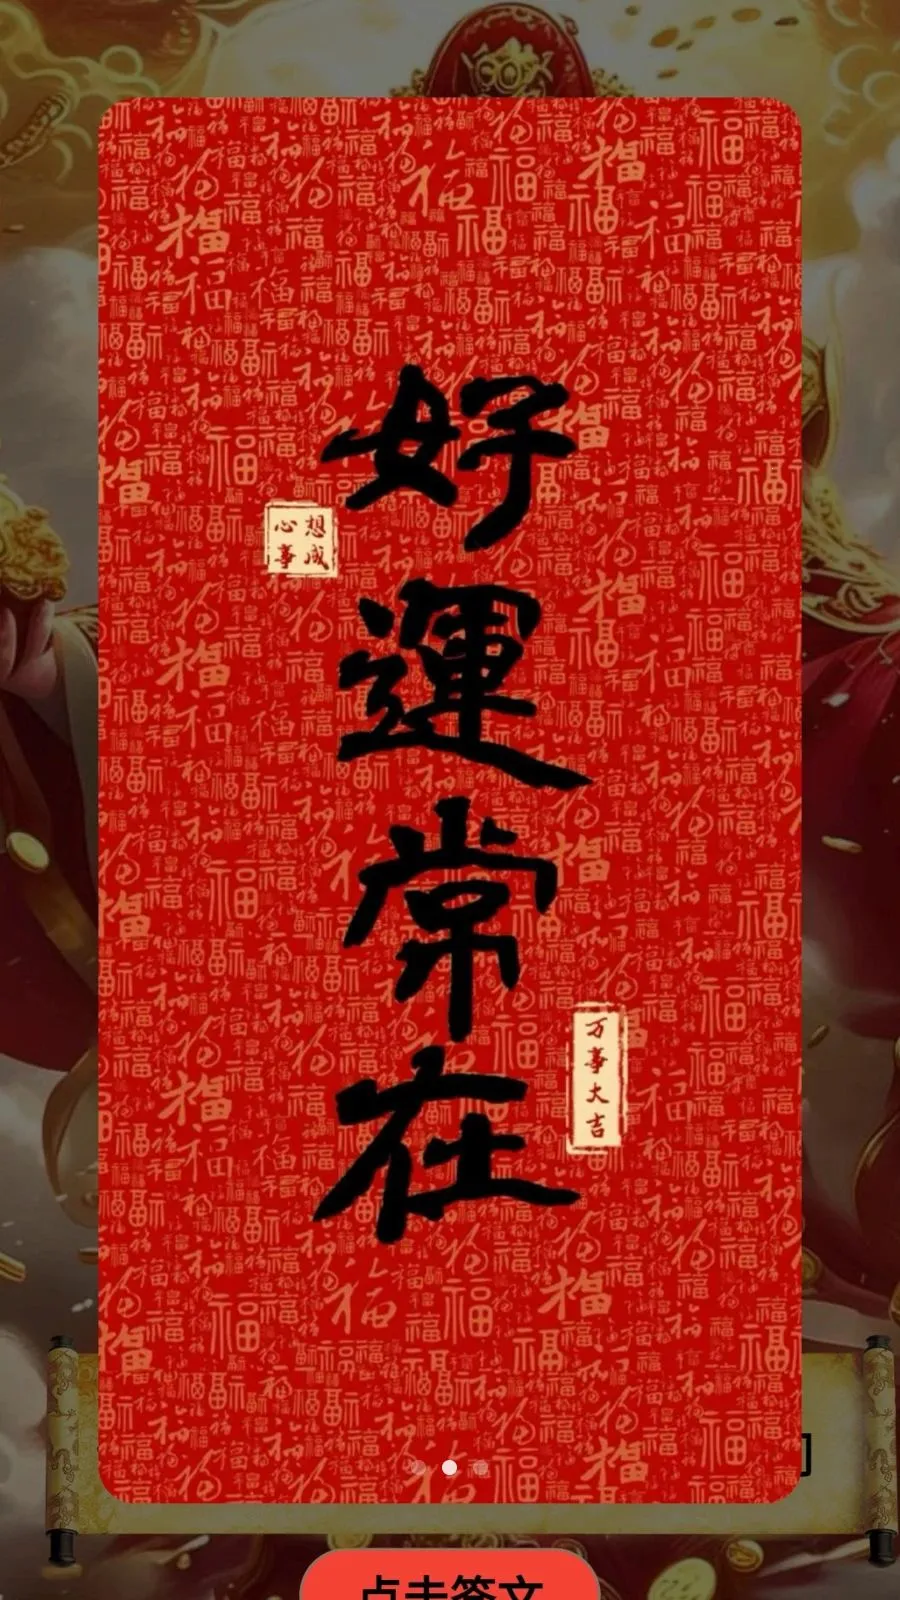 好運常在
心想
事成
万事大吉
点击签文